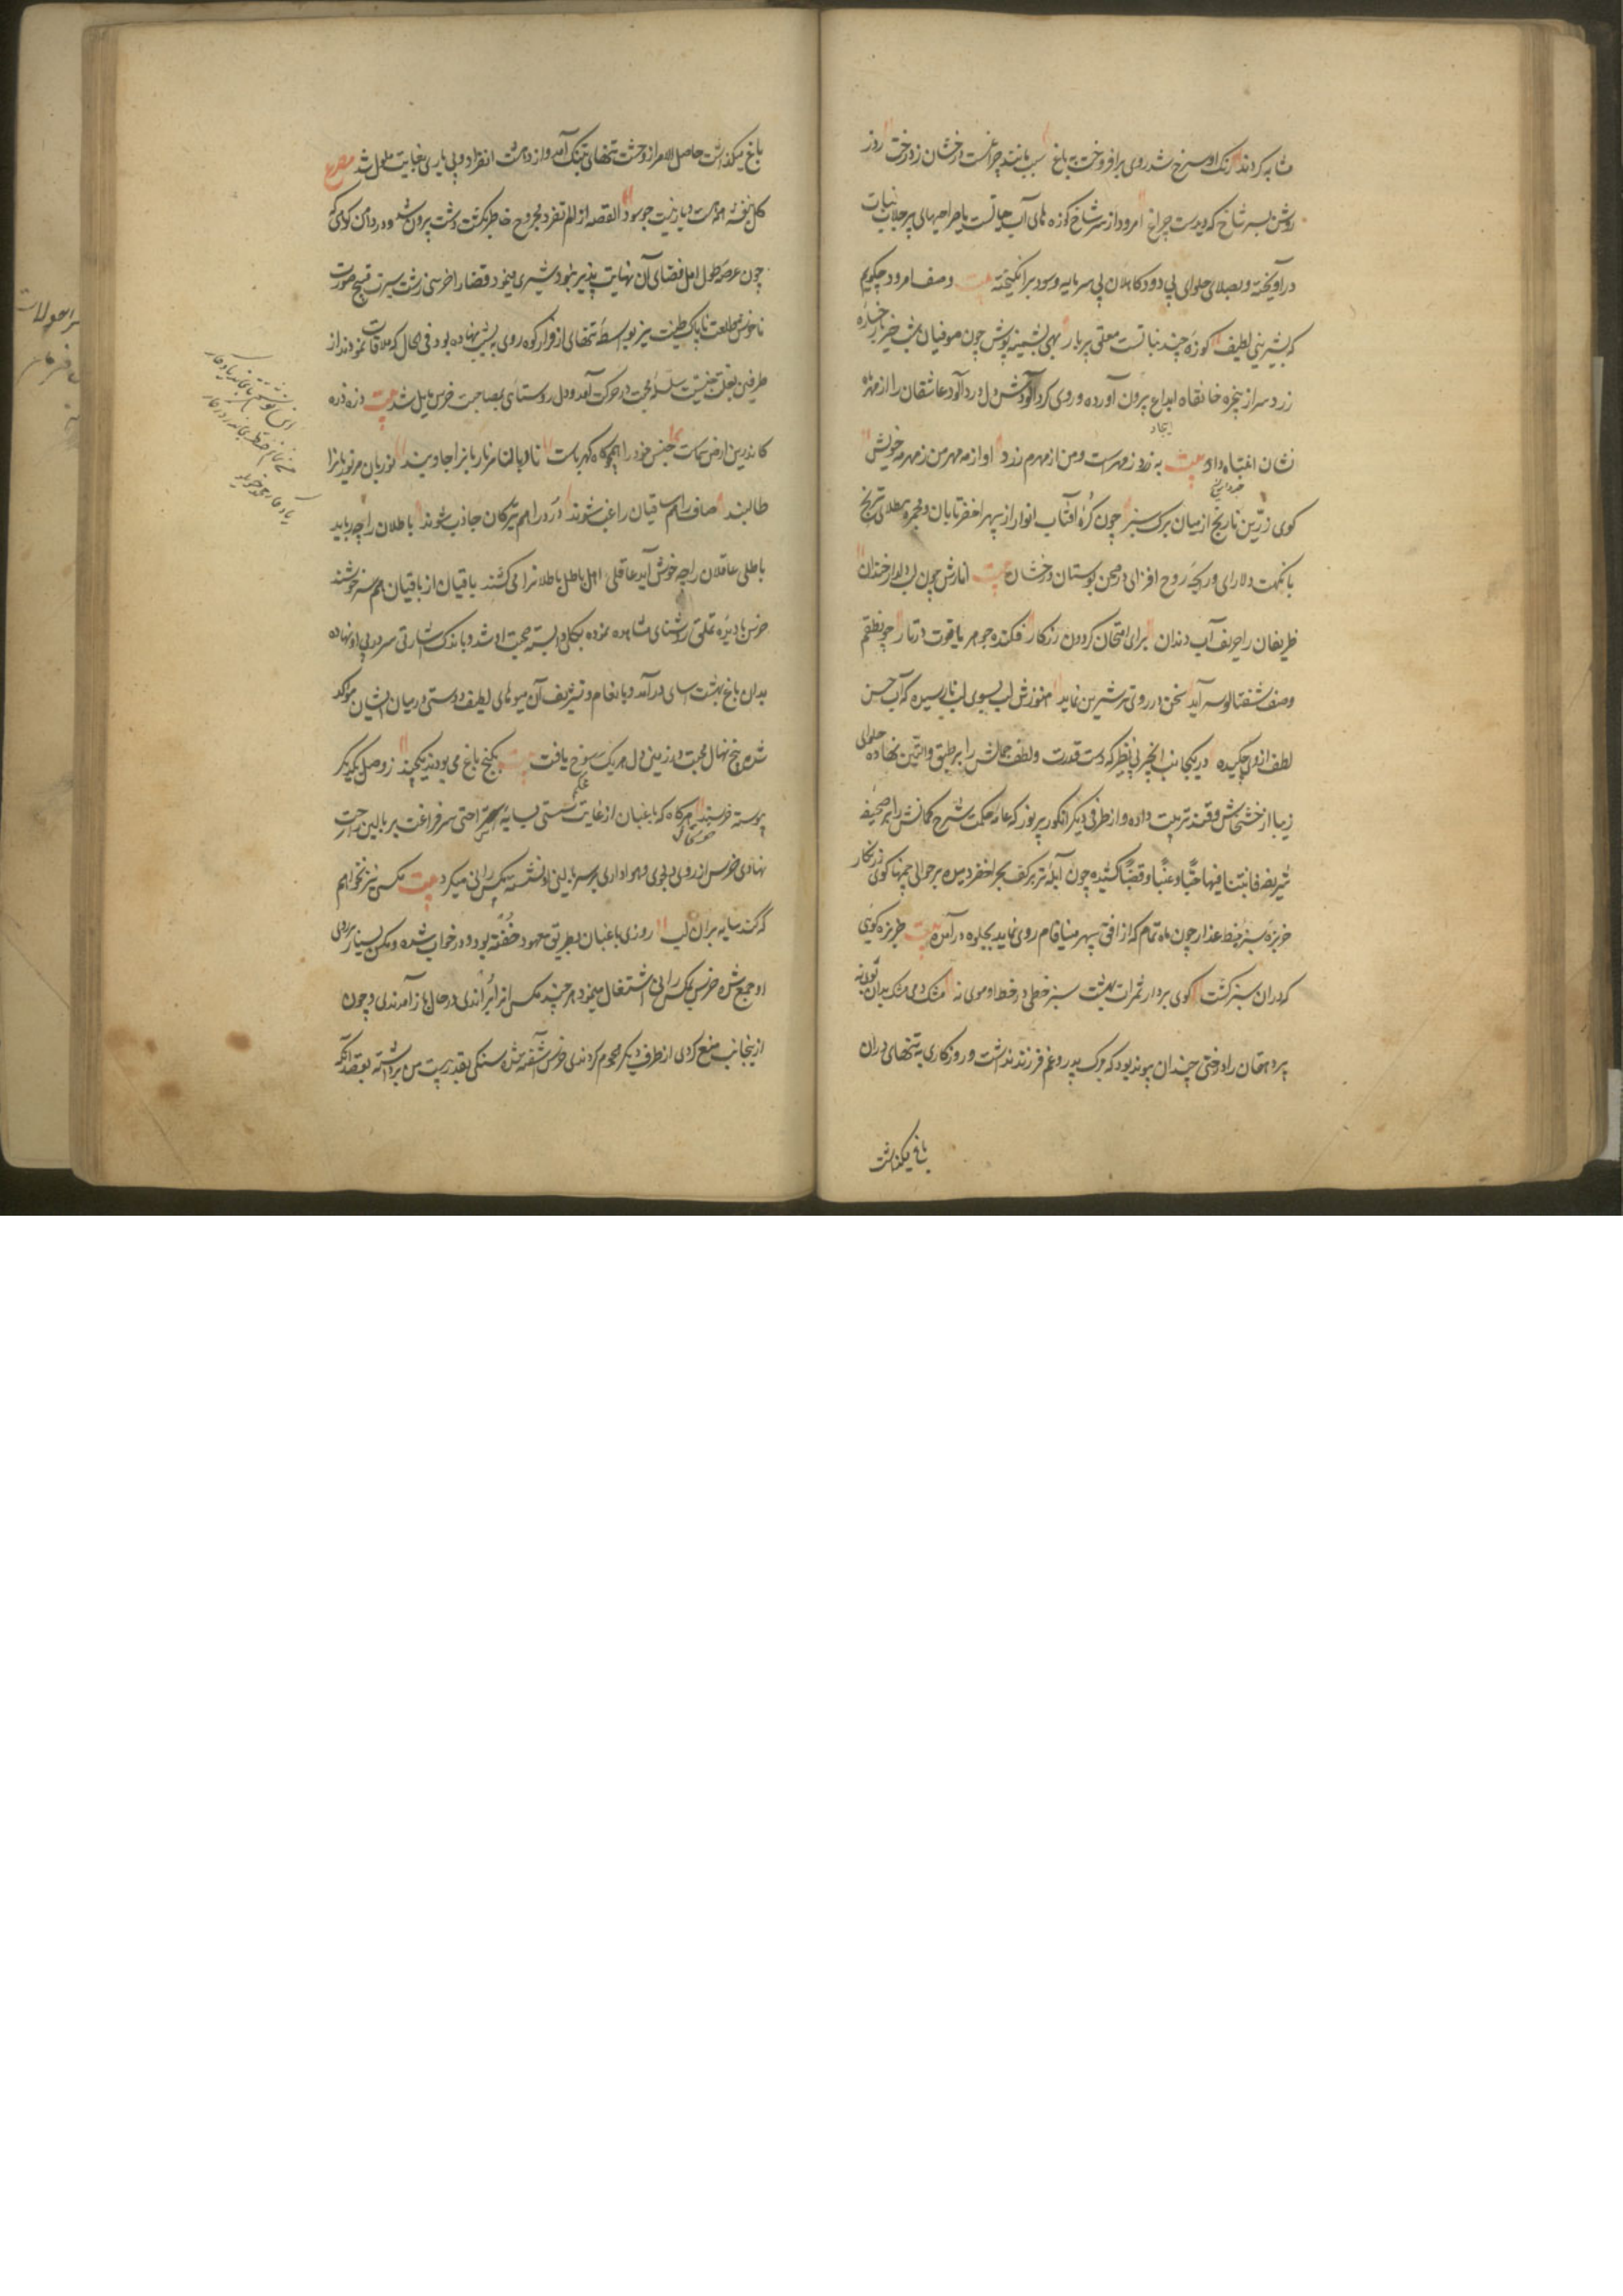 مشابه کردند رنک او سرخ شد روی برافروخت به باغ سیب مانند چراغست درخشان ز درخت روز
روشن بسر شاخ که دیدست چراغ امرود از سر شاخ کوزه های آب حیاتست یا صراحیهای پر جلاب نبات
درآویخته و بصلای حلوای بی دود کاهلان بی سرمایه و سود برانکیخته بیت وصف امرود چکویم
که بشیرینی لطیف کوزه چند نباتست معلق بر بار بهی پشمینه پوش چون صوفیان شب خیز رخساره
زرد سر از پنجره خانقاه ابداع بیرون آورده و روی کردآلودش دل دردآلود عاشقان را از مهر
ایجاد
نشان انتباه داد بیت به زرد ز مهرست و من از مهرم زرد او از مه مهر من ز مهر مه خویش
کوی زرین نارنج از میان برک سبز چون کره آفتاب انوار از سپهر اخضر تابان و مجمره مطلای ترنج
با نکهت دلارای و رایحه روح افزای در صحن بوستان درخشان بیت انارش چون لب دلدار خندان
ظریفان را حریف آب دندان برای امتحان کردون زرکار فکنده جوهر یاقوت در نار چو نطقم
وصف شفتالو سراید سخن در روی تر شیرین نماید هنوزش لب بسوی لب نارسیده که آب حسن
لطف ازوی چکیده در یکجانب انجیر بی نظیر که دست قدرت و لطف جمالش را بر طبق والتین نهاده حلوای
زیبا از خشخاش و قند ترتیب داده و از طرفی دیکر انکور پر نور که خامه حکمت شرح کمالش را بر صحیفه
شریفه فانبتنا فیها حبا و عنبا و قضبا کشیده چون آبله تر بر کف بحر اخضر دمیده بر حوالی چمنها کوی زرنکار
خربزه سبز خط عذار چون ماه تمام که از افق سپهر مینافام روی نماید بجلوه درآمده بیت خربزه کویی
که دران سبز کشت کوی برد از ثمرات بهشت سبز خطی در خط او موی نه مشک دمی مشک بدان بوی نه
پیر دهقان را با هر درختی چندان پیوند بود که برک پدر و غم فرزند نداشت و روزکاری به تنهای دران
باغ میکذاشت
باغ میکذاشت حاصل الامر از وحشت تنهای تنک آمد و از دهشت انفراد و بی یاری بغایت ملول شد مصرع
کل بنفشه همه هست و یار نیست چه سود القصه از الم تفرد مجروح خاطر بکشت دشت بیرون شد و در دامن کوهی که
چون عرصه طول امل فضای آن نهایت پذیر نبود سیری مینمود قضا را خرسی زشت سیرت قبیح صورت
ناخوش طلعت ناپاک طینت نیز بواسطه تنهای از فراز کوه روی بنشیب نهاده بود فی الحال که ملاقات نمودند از
طرفین بعلت جنسیت سلسله محبت در حرکت آمد و دل روستای بمصاحبت خرس مایل شد بیت ذره ذره
کاندرین ارض و سماست جنس خود را همچو کاه کهرباست ناریان مر ناریانرا جاذبند نوریان مر نوریانرا
طالبند صاف را هم صافیان راغب شوند درد را هم تیرکان جاذب شوند باطلان را چه رباید
باطلی عاقلان را چه خوش آید عاقلی اهل باطل باطلانرا می کشند باقیان از باقیان هم سرخوشند
خرس نادیده تملق روستای مشاهده نموده بکلی وابسته محبت او شد و باندک اشارتی سر در پی او نهاده
بدان باغ بهشت آسای درآمد و بانعام و تشریف آن میوهای لطیف دوستی در میان ایشان مؤکد
شده بیخ نهال محبت در زمینی دل هر یک رسوخ یافت بیت بکنج باغ می بودند یکچند ز وصل یکدیکر
پیوسته خرسند هرکاه که باغبان از غایت سستی بسایه استراحتی سر فراغت بر بالین راحت
نهادی خرس از روی دلجوی و هواداری بر سر بالین او نشسته مکس رانی میکرد بیت مکس نیز نخواهم
که کند سایه بران لب روزی باغبان بطریق معهود خفته بود و در خواب شده و مکس بسیار بر روی
او جمع شده خرس بمکس رانی اشتغال مینمود هرچند مکس از انرا براندی درحال باز آمدندی و چون
از ینجانب منع کردی از طرف دیکر هجوم کردندی خرس آشفته شده سنکی بقدر بیست من برداشته بقصد آنکه